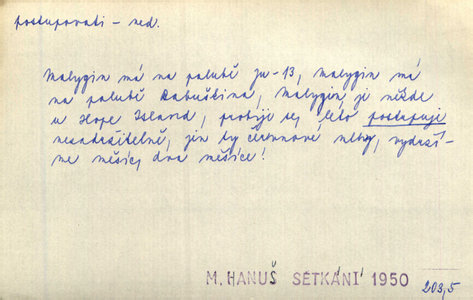 postupovati – ned.
Malygin má na palubě Ju-13, Malygin má
na palubě Babuškina, Malygin je někde
u Hope Island, probije se, léto postupuje
nezadržitelně, jen ty červnové mlhy, vydrží-
me měsíc, dva měsíce!
M. HANUŠ SETKÁNÍ 1950
203,5